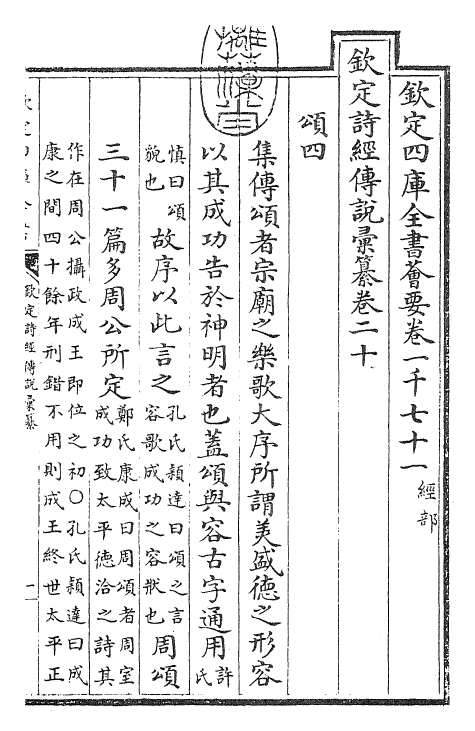 欽定四庫全書薈要卷一千七十一 經部
欽定詩經傳說彙纂卷二十
頌四
集傳頌者宗廟之樂歌大序所謂美盛德之形容
以其成功告於神明者也蓋頌與容古字通用 許氏
慎曰頌貌也 故序以此言之 孔氏穎達曰頌之言容歌成功之容狀也 周頌
三十一篇多周公所定 鄭氏康成曰周頌者周室成功致太平德洽之詩其
作在周公攝政成王即位之初○孔氏穎達曰成
康之間四十餘年刑錯不用則成王終世太平正
欽定詩經傳說彙纂
一